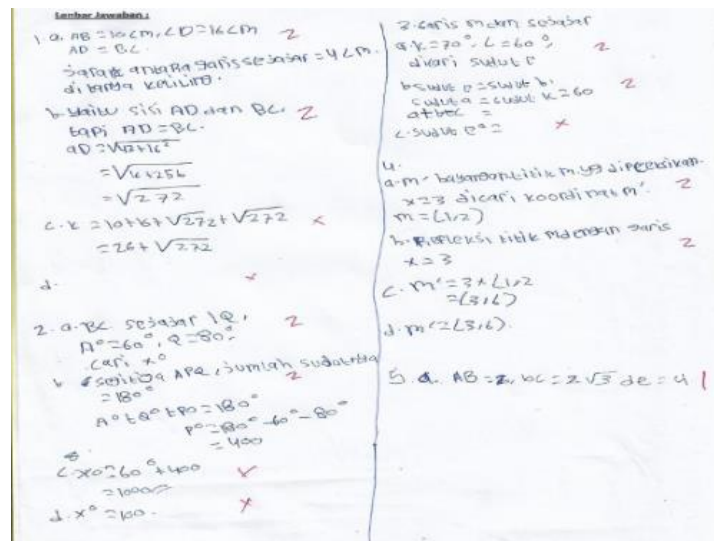 Lembar Jawaban :
1. a. AB = 10 cm, CD = 16 cm 2
AD = BC.
Jarak antara garis sejajar = 4 cm.
ditanya keliling.
b. yaitu sisi AD dan BC. 2
tapi AD = BC.
AD = √4²+16²
= √16+256
= √272
c. k = 10+16+√272+√272 x
= 26+√272
d. x
2. a. BC sejajar PQ. 2
A° = 60°, Q = 80°.
cari x°
b segitiga APQ, jumlah sudutnya 2
= 180°
A° + Q° + P° = 180°
P° = 180° - 60° - 80°
= 400
c. x° = 60° + 400 x
= 1000
d. x° = 100. x
3. garis m dan sejajar
a. k = 70°, L = 60°, 2
dicari sudut c
b sudut c = sudut b. 2
sudut a = sudut k = 60
a+b+c =
c. sudut c° = x
4.
a. m' bayangan titik m yg direfleksikan.
x = 3 dicari koordinat m'. 2
m = (1,2)
b. Refleksi titik m dengan garis 2
x = 3
c. m' = 3 x (1,2
= (3,6)
d. m' = (3,6).
5. a. AB = 2, bc = 2√3 de = 4 1